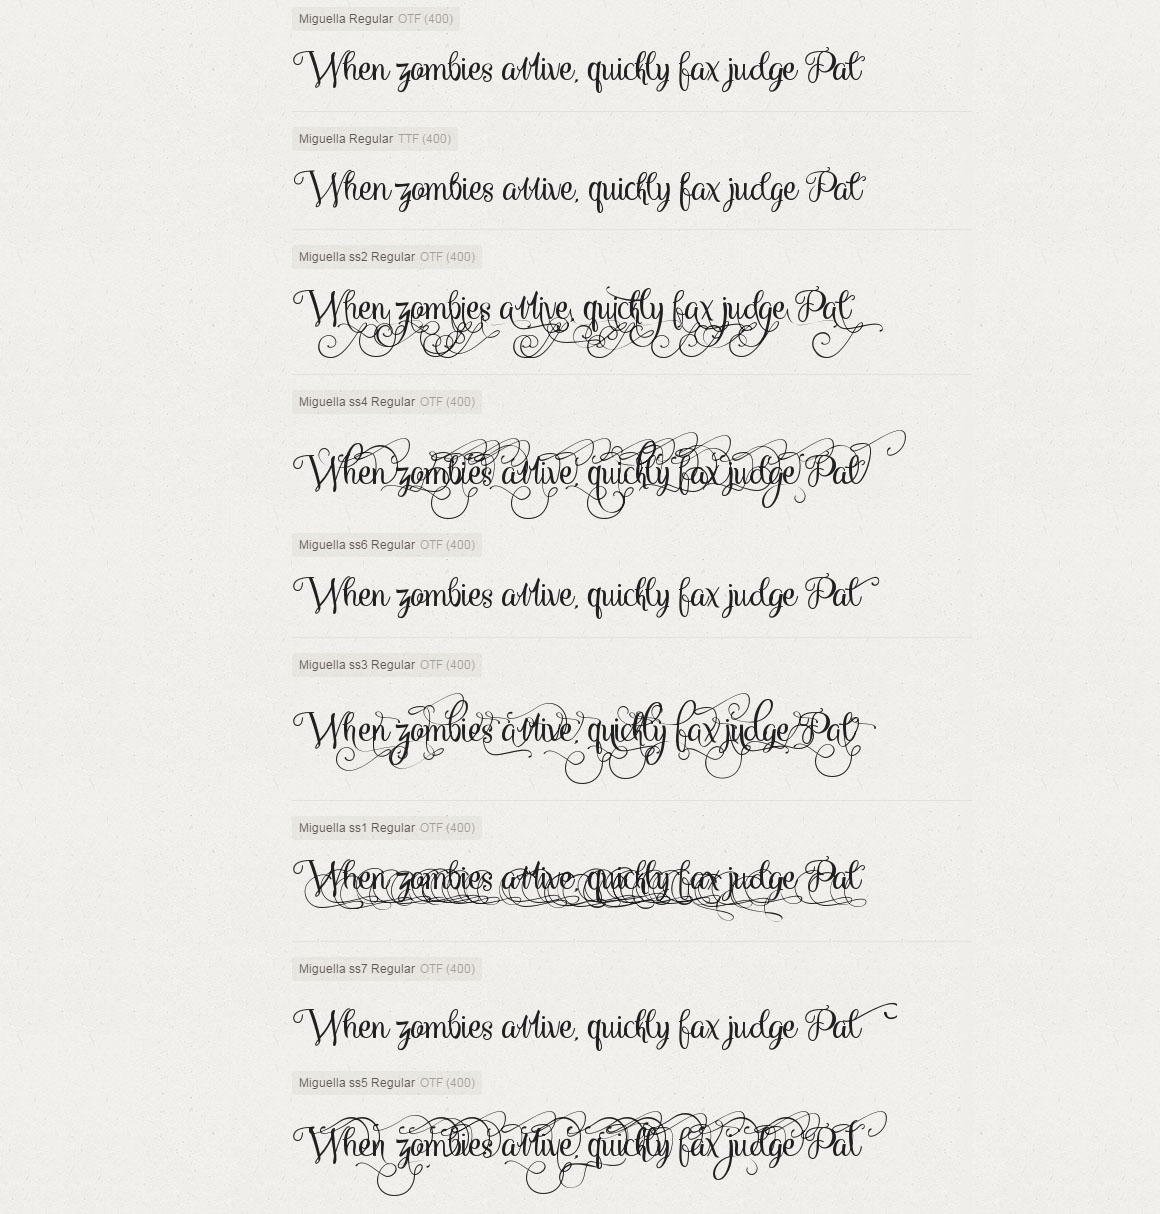 Miguella Regular OTF (400)
When zombies arrive, quickly fax judge Pat
Miguella Regular TTF (400)
When zombies arrive, quickly fax judge Pat
Miguella ss2 Regular OTF (400)
When zombies arrive, quickly fax judge Pat
Miguella ss4 Regular OTF (400)
When zombies arrive, quickly fax judge Pat
Miguella ss6 Regular OTF (400)
When zombies arrive, quickly fax judge Pat
Miguella ss3 Regular OTF (400)
When zombies arrive, quickly fax judge Pat
Miguella ss1 Regular OTF (400)
When zombies arrive, quickly fax judge Pat
Miguella ss7 Regular OTF (400)
When zombies arrive, quickly fax judge Pat
Miguella ss5 Regular OTF (400)
When zombies arrive, quickly fax judge Pat